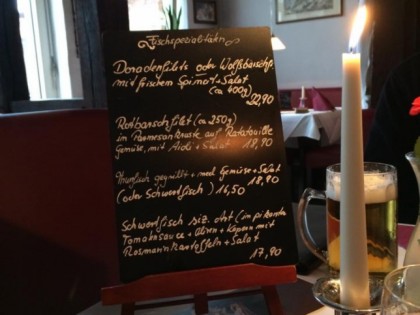 Fischspezialitäten
Doradenfilets oder Wolfsbarschf.
mit frischem Spinat + Salat
(ca 400g)
22,90
Rotbarschfilet (ca 250g)
im Parmesankruste auf Ratatouille
Gemüse, mit Aioli + Salat 18,90
Thunfisch gegrillt + med Gemüse + Salat
18,80
(oder Schwertfisch) 16,50
Schwertfisch siz. Art (in pikante
Tomatensauce + Oliven + Kapern mit
Rosmarin Kartoffeln + Salat
17,90